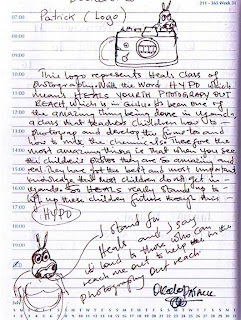 211 - 365 Week 31
Patrick (Logo)
07:00
08:00
09:00
10:00
11:00
12:00
13:00
14:00
15:00
16:00
17:00
18:00
19:00
This logo represents Heals class of
photography. With the Word HYPO which
means HEALS YOUTH PHOTOGRAPHY OUT
REACH, which is in Gulu. It's been one of
the amazing thing being done in Uganda,
a class that teachers children how to
photograp and develop the films to and
how to mix the chemicals. Therefore the
most amazing thing is that when you see
the children's photos they are so amazing and
real. They have got the best and most important
knowledge that most children don't get in
Uganda. So HEALS really stand up to
lift up these children future through this.
HYPO
I stand for
heals and I say
to those who can
reach me out to help me in
photography out reach